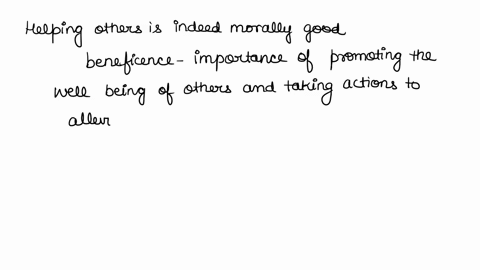 Helping others is indeed morally good
beneficence - importance of promoting the
well being of others and taking actions to